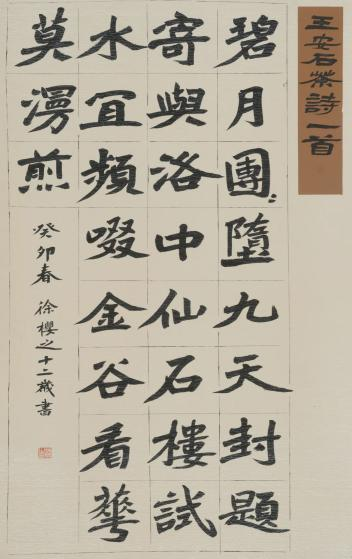 王安石茶詩一首
碧月團〻墮九天封題
寄與洛中仙石樓試
水冝頻啜金谷看華
莫漫煎
癸卯春 徐櫻之十二歲書